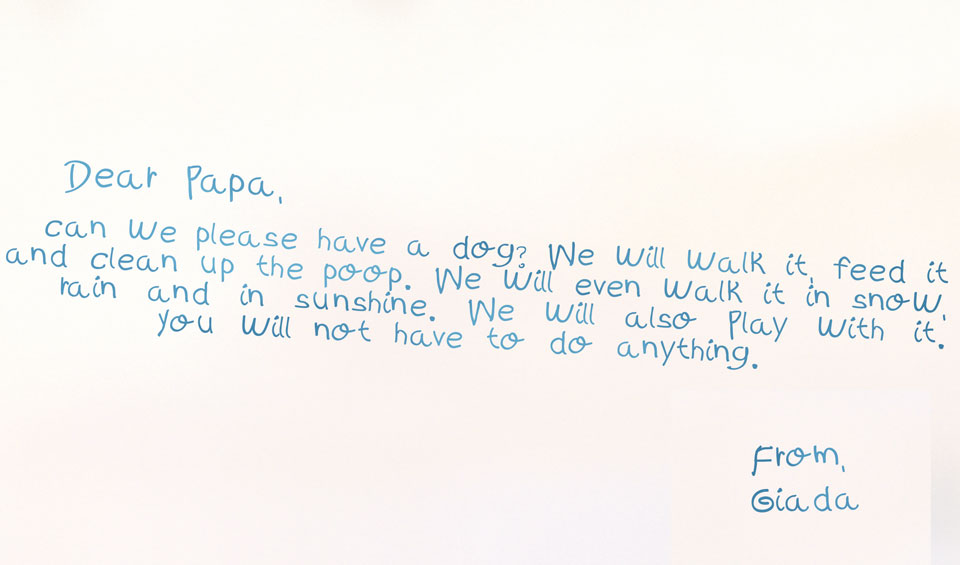 Dear Papa,
can we please have a dog? We will walk it, feed it
and clean up the poop. We will even walk it in snow,
rain and in sunshine. We will also play with it.
you will not have to do anything.
From,
Giada